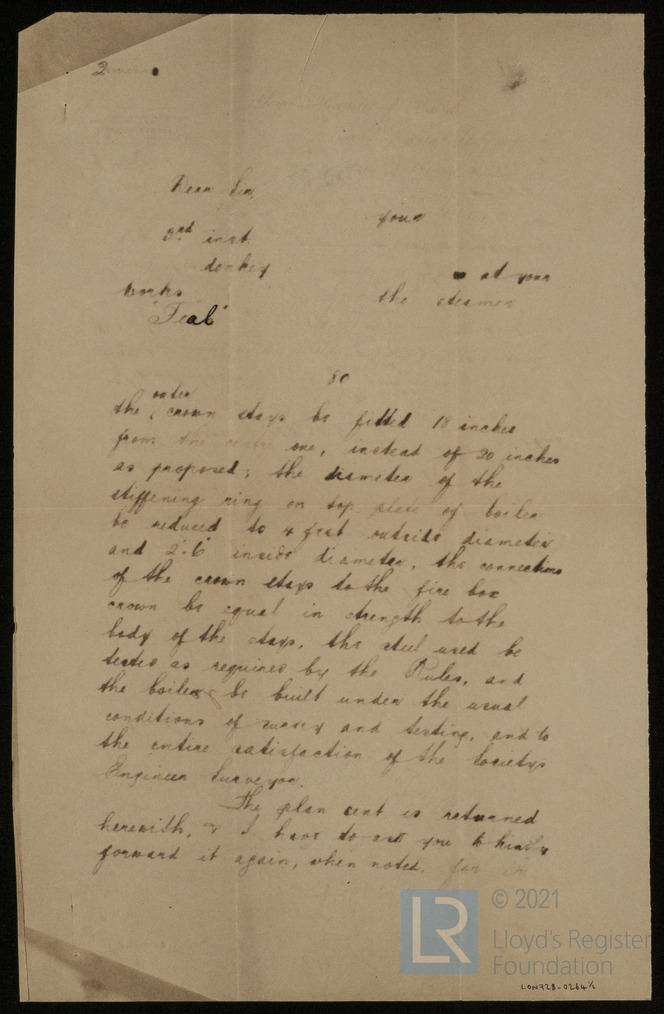 Dear Sir,
your
3rd inst.
donkey
at your
works
the steamer
"Teal"
80
outer
the crown stays be fitted 18 inches
from the centre one, instead of 20 inches
as proposed; the diameter of the
stiffening ring on top plate of boiler
be reduced to 4 feet outside diameter
and 2'.6" inside diameter, the connections
of the crown stays to the fire box
crown be equal in strength to the
body of the stays, the steel used be
tested as required by the Rules, and
the boiler be built under the usual
conditions of survey and testing, and to
the entire satisfaction of the Society's
Engineer Surveyor.
The plan sent is returned
herewith, & I have to ask you to kindly
forward it again, when noted, for
LR © 2021
Lloyd's Register
Foundation
LON728-0264 1/2